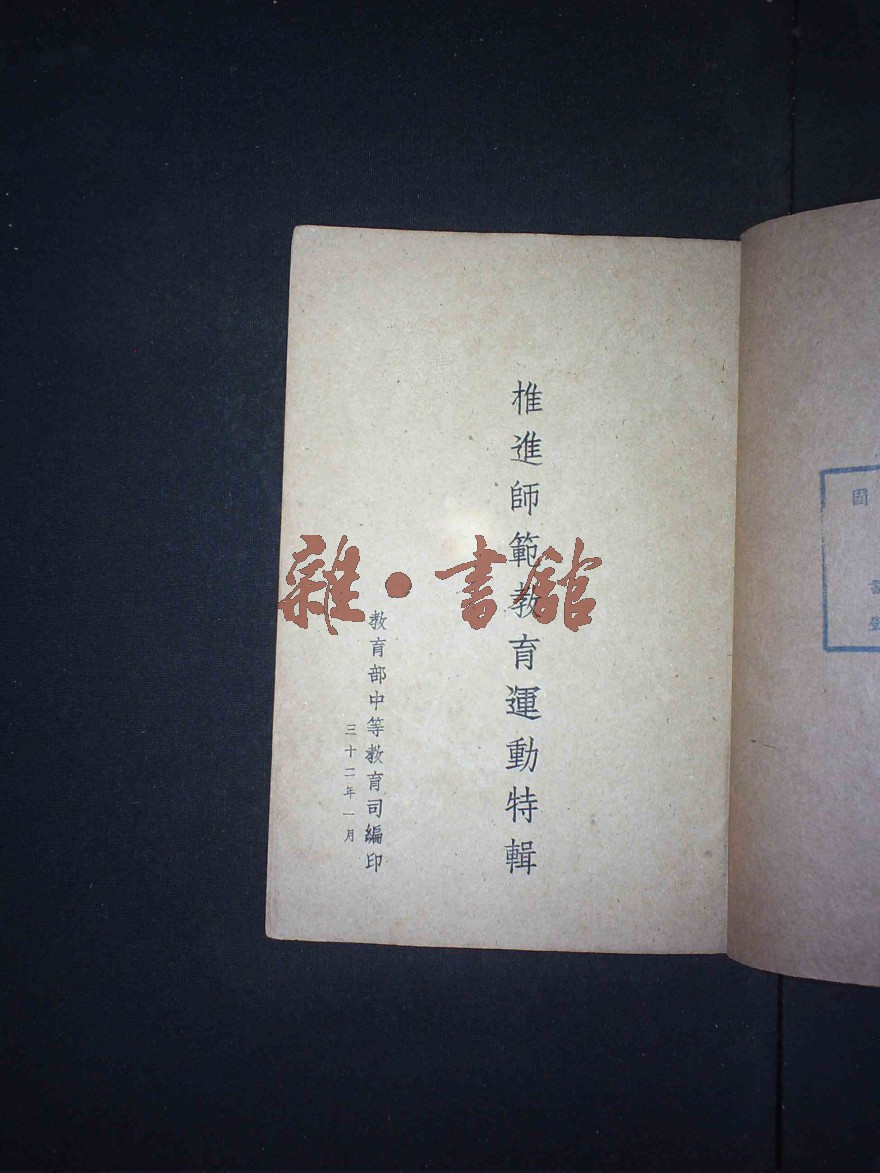 推進師範教育運動特輯
教育部中等教育司編印
三十二年一月
雜·書館
國